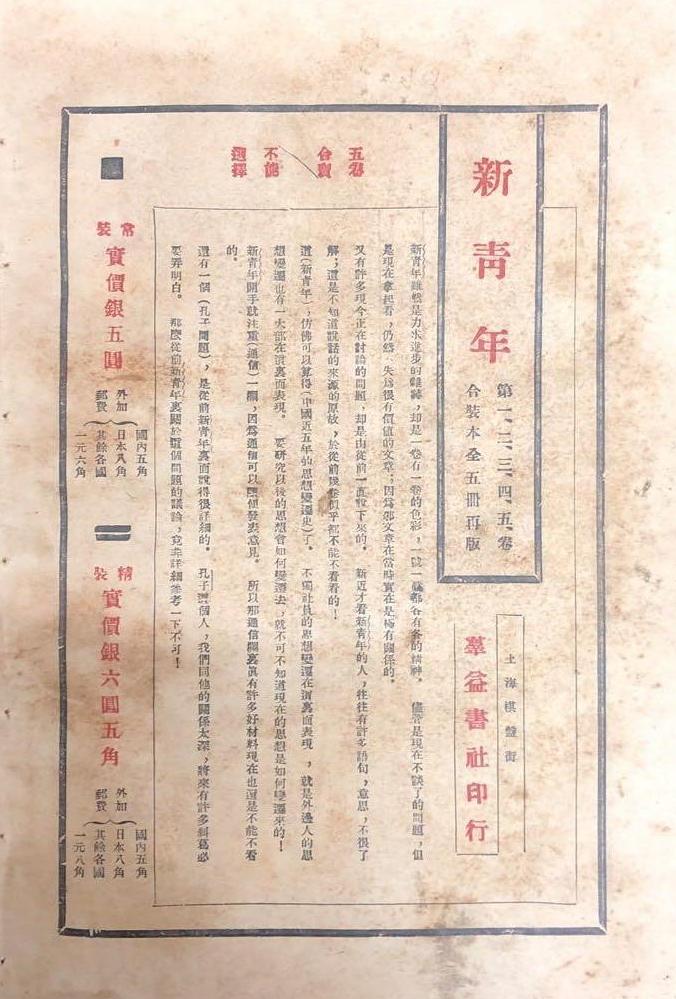 新青年
第一、二、三、四、五、卷
合裝本全五冊再版
上海棋盤街
羣益書社印行
五卷
合賣
不能
選擇
新青年雖然是力求進步的雜誌，却是一卷有一卷的色彩，一號一號都各有各的精神。 儘管是現在不談了的問題，但
是現在拿起看，仍然 失爲很有價值的文章；因爲那文章在當時實在是極有關係的。
又有許多現今正在討論的問題，却是由從前一直說下來的。 新近才看新青年的人，往往有許多語句，意思，不很了
解；這是不知道說話的來源的原故，於從前幾卷似乎都不能不看看的！
這（新青年），彷彿可以算得（中國近五年的思想變遷史）了。 不獨社員的思想變遷在這裏面表現，就是外邊人的思
想變遷也有一大部在這裏面表現。 要研究以後的思想會如何變遷去，就不可不知道現在的思想是如何變遷來的！
新青年開手就注重（通信）一欄，因爲通信可以隨便發表意見。 所以那通信欄裏眞有許多好材料現在也還是不能不看
的。
還有一個（孔子問題），是從前新青年裏面說得很詳細的。 孔子這個人，我們同他的關係太深，將來有許多糾葛必
要弄明白。 那麽從前新青年裏關於這個問題的議論，竟非詳細參考一下不可！
常裝
實價銀五圓
外加郵費
國內五角
日本八角
其餘各國一元六角
精裝
實價銀六圓五角
外加郵費
國內五角
日本八角
其餘各國一元八角